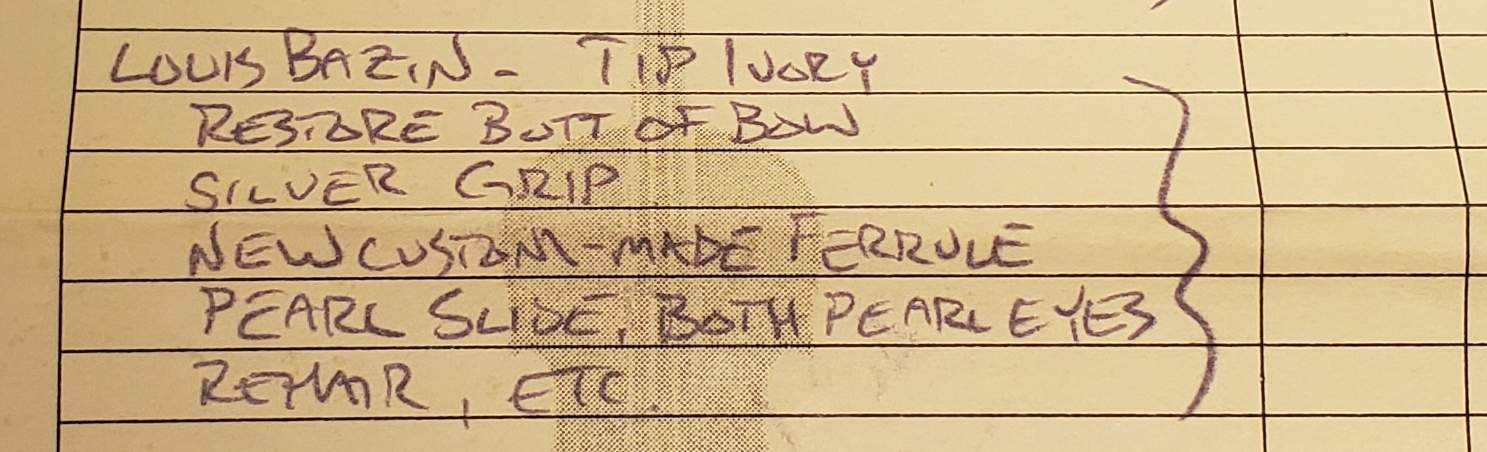 LOUIS BAZIN - TIP IVORY
RESTORE BUTT OF BOW
SILVER GRIP
NEW CUSTOM-MADE FERRULE
PEARL SLIDE, BOTH PEARL EYES
REHAIR, ETC.